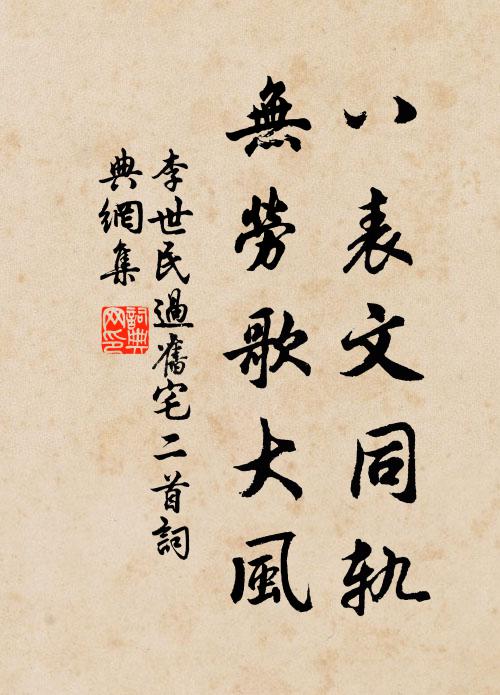 八表文同軌
無勞歌大風
李世民過舊宅二首詞
典網集
詞典
网印